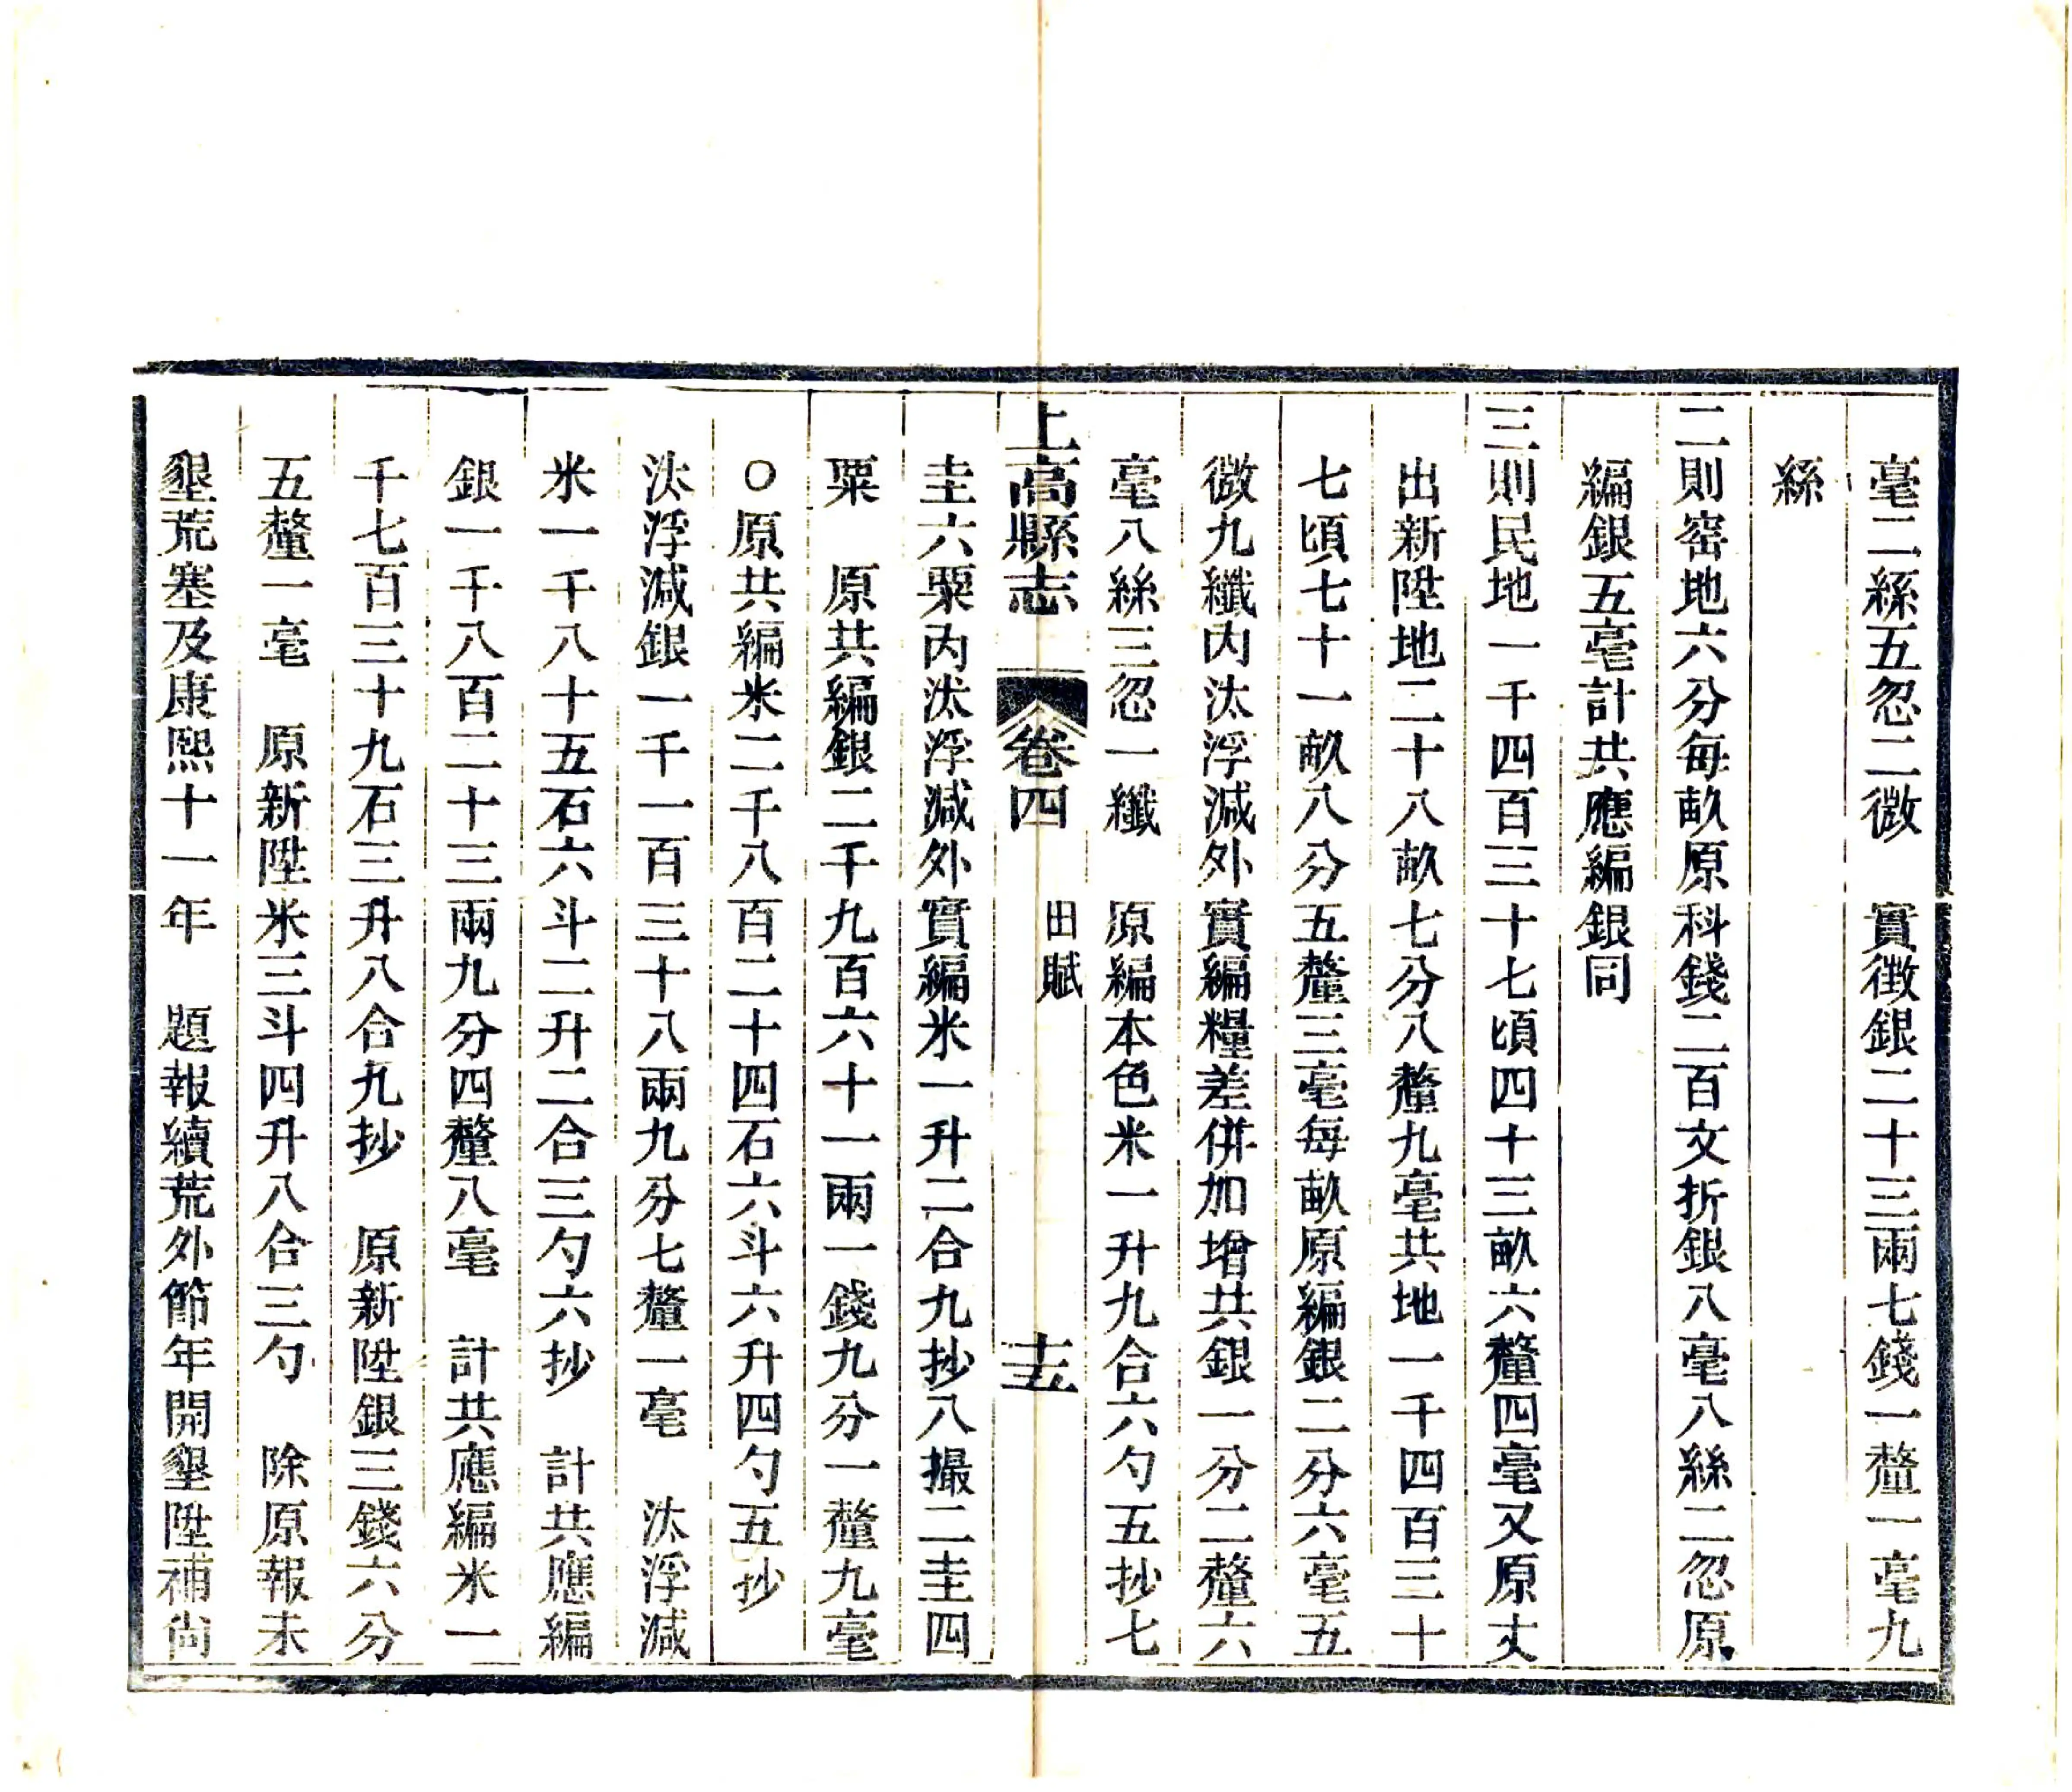 毫二絲五忽二微　實徴銀二十三兩七錢一釐一毫九
絲
二則窑地六分每畝原科錢二百文折銀八毫八絲二忽原
編銀五毫計共應編銀同
三則民地一千四百三十七頃四十三畝六釐四毫又原丈
出新陞地二十八畝七分八釐九毫共地一千四百三十
七頃七十一畝八分五釐三毫每畝原編銀二分六毫五
微九纖内汰浮減外實編糧差併加增共銀一分二釐六
毫八絲三忽一纖　原編本色米一升九合六勺五抄七
上高縣志　卷四　田賦　十五
圭六粟内汰浮减外實編米一升二合九抄八撮二圭四
粟　原共編銀二千九百六十一兩一錢九分一釐九毫
○原共編米二千八百二十四石六斗六升四勺五抄
汰浮減銀一千一百三十八兩九分七釐一毫　汰浮減
米一千八十五石六斗二升二合三勺六抄　計共應編
銀一千八百二十三兩九分四釐八毫　計共應編米一
千七百三十九石三升八合九抄　原新陞銀三錢六分
五釐一毫　原新陞米三斗四升八合三勺　除原報未
墾荒塞及康熙十一年　題報續荒外節年開墾陞補尙